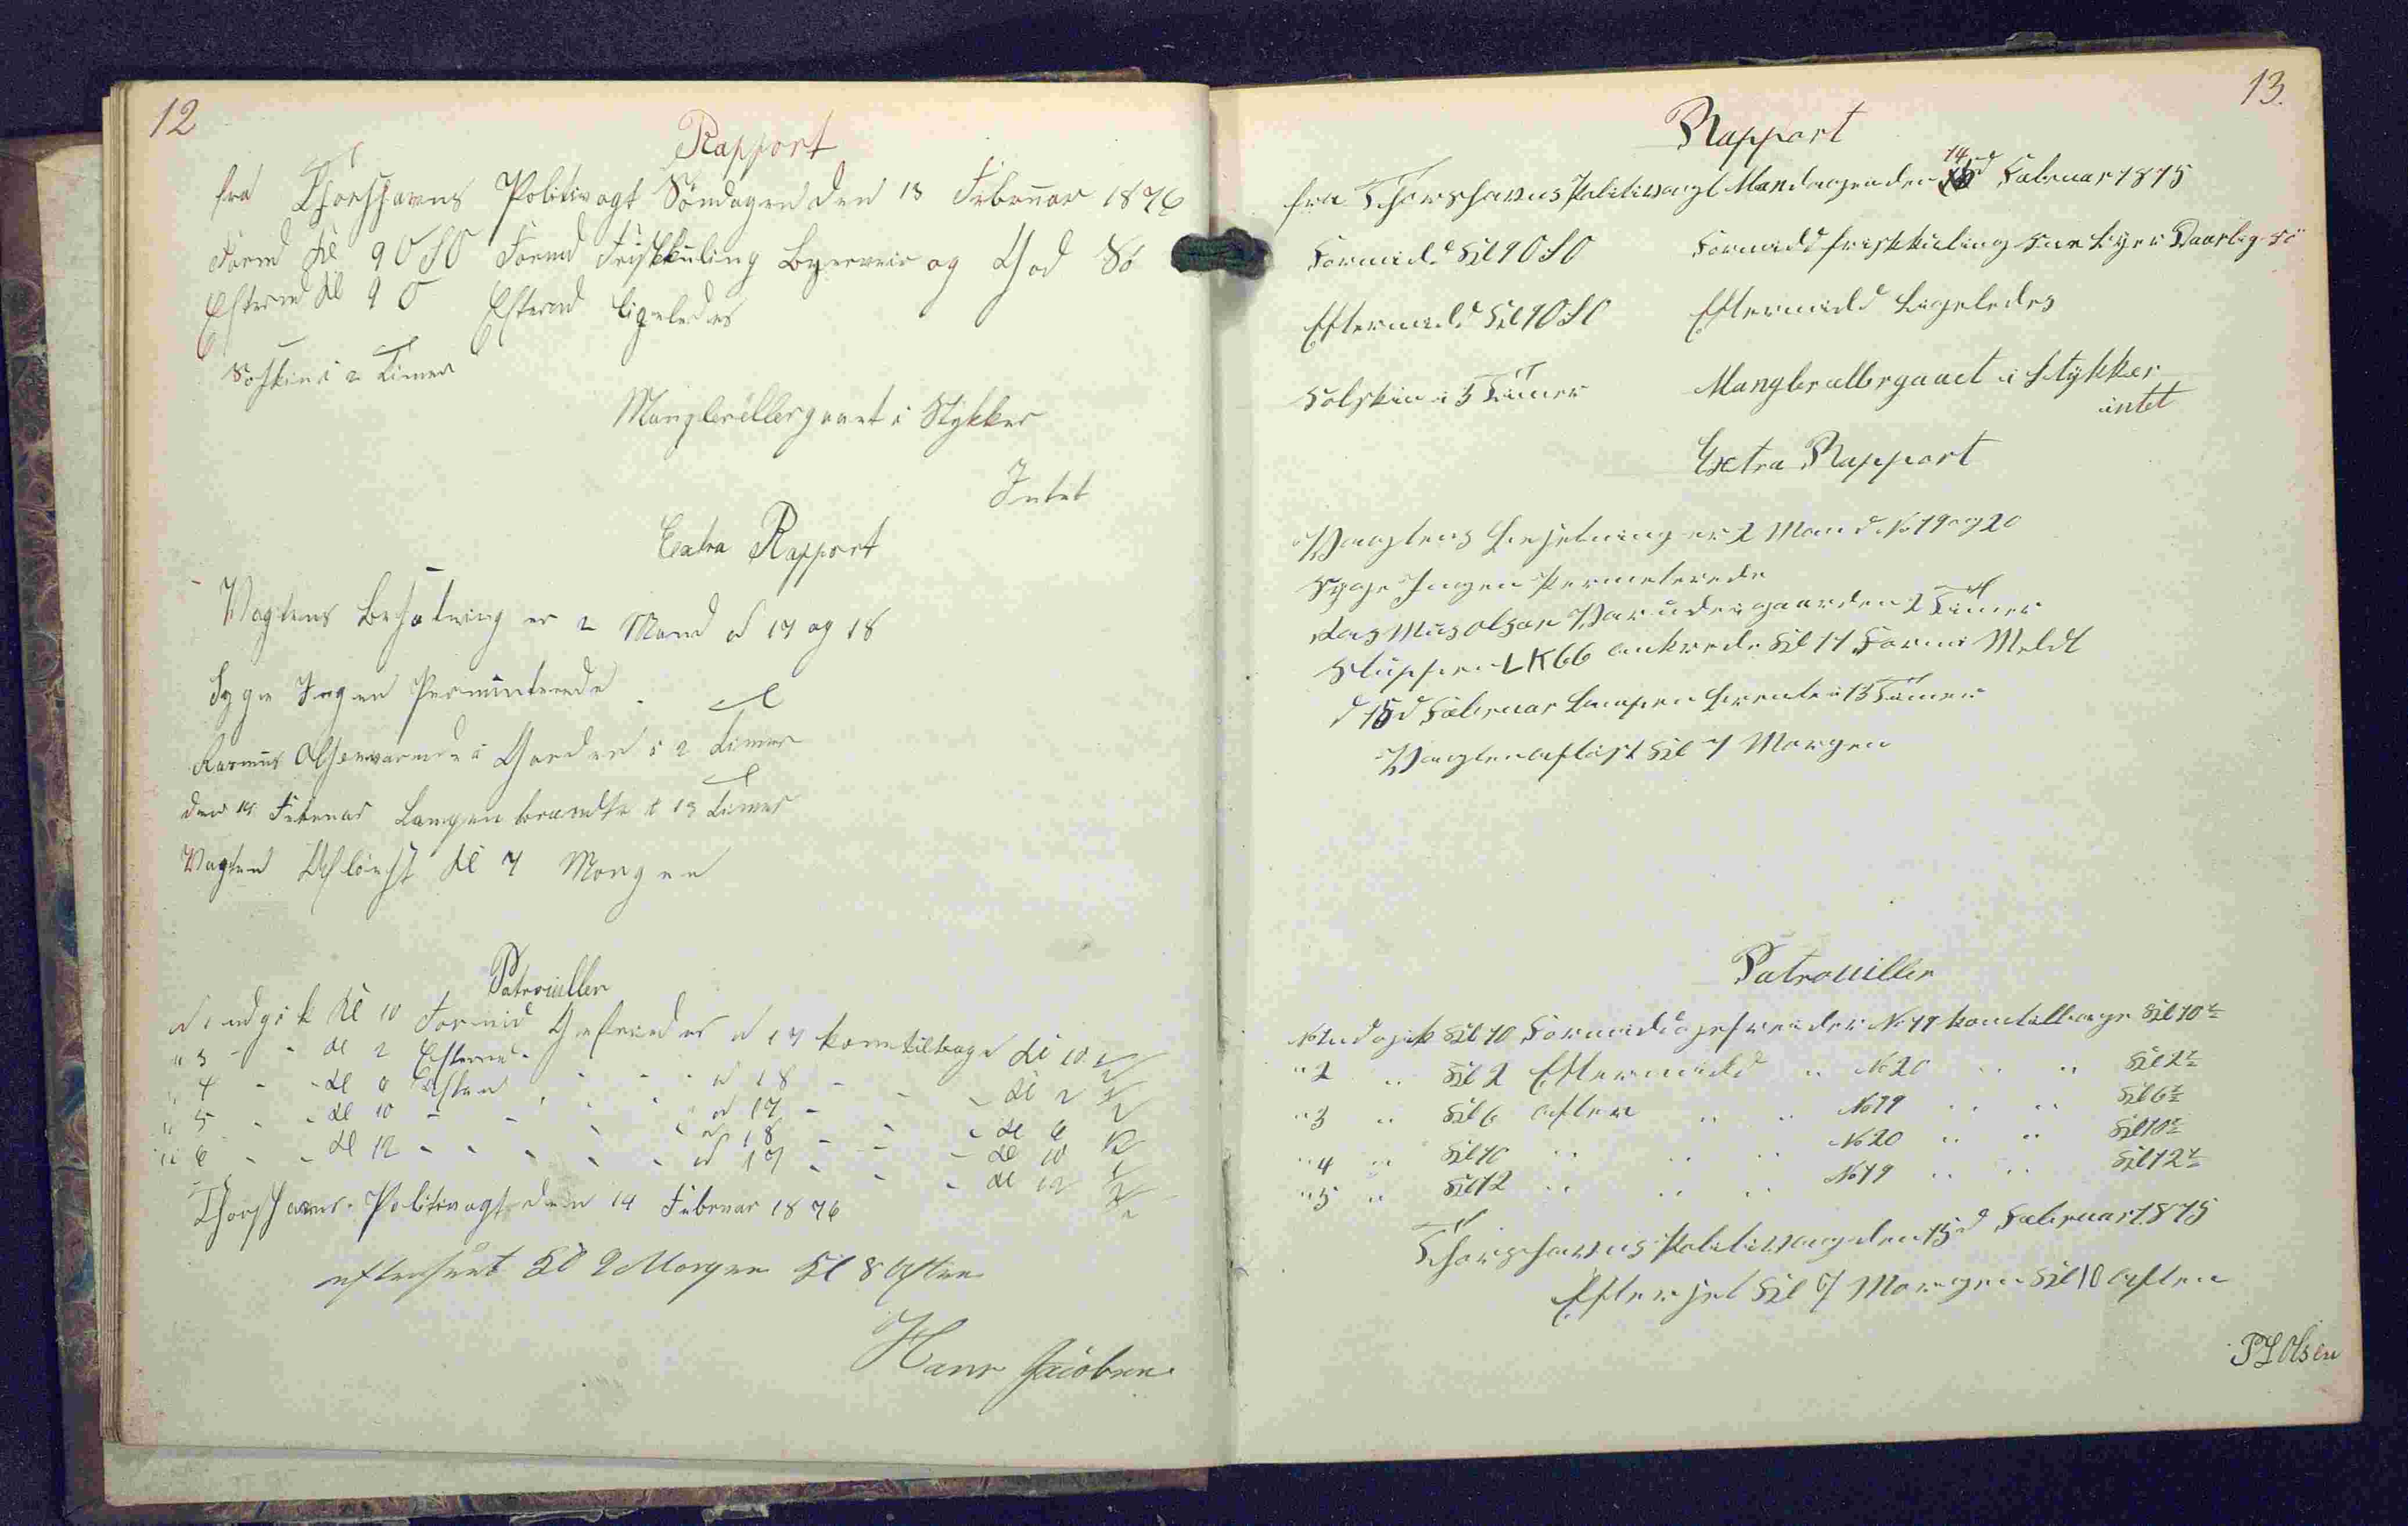 12
Rapport
fra Thorshavns Politivagt Søndagen den 13 Februar 1876
Formd Kl 9 O S O Formd Friskkuling Bygeveir og God Sö
Efterm Kl 9 O Eftermd ligeledes
Solskin i 2 Timer
Mangler eller gaaet i Stykker
Intet
Extra Rapport
Vagtens Besætning er 2 Mand N 17 og 18
Syge Ingen Permitterede
Rasmus Olsen varude i Gaarden i 2 Timer
den 14 Februar Lampen brændte i 13 Timer
Vagten Aflöist Kl 7 Morgen
Patrouiller
N 1 udgik Kl 10 Formid Gefreider N 17 kom tilbage Kl 10 1/2
" 3 - - Kl 2 Efterm - - - N 18 - - - Kl 2 1/2
" 4 - - Kl 6 Aften - - - N 17 - - - Kl 6 1/2
" 5 - - Kl 10 - - - - N 18 - - - Kl 10 1/2
" 6 - - Kl 12 - - - - N 17 - - - Kl 12 1/2
Thorshavns Politivagt den 14 Februar 1876
efterseet Kl 9 Morgen Kl 8 Aften
Hans Jacobsen
13.
Rapport
fra Thorshavns Politivagt Mandagen den 14 d Februar 1875
Formidd Kl 9 O S O Formidd friskkuling Sne Byer Daarlig Sö
Eftermidd Kl 9 O S O Eftermidd Ligeledes
Solskin i 3 Timer Mangler eller gaaet i Stykker
intet
Extra Rapport
Vagtens Besetning er 2 Mand No 19 og 20
Syge Ingen Permeterede
Rasmus Olsen Var ude i gaarden 2 Timer
Sluppen LK 66 ankrede Kl 11 Form Meldt
d 15 d Februar Lampen brente i 13 Timer
Vagten aflöst Kl 7 Morgen
Patrouiller
No 1 udgik Kl 10 Formidd gefreider No 19 kom tilbage Kl 10 1/2
" 2 " Kl 2 Eftermidd " No 20 " " Kl 2 1/2
" 3 " Kl 6 aften " " No 19 " " Kl 6 1/2
" 4 " Kl 10 " " " No 20 " " Kl 10 1/2
" 5 " Kl 12 " " " No 19 " " Kl 12 1/2
Thorshavns Politivag den 15 d Februar 1875
Efterset Kl 7 Morgen Kl 10 aften
Olsen